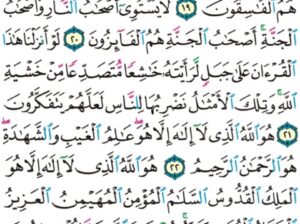 هُمُ ٱلْفَٰسِقُونَ ١٩ لَا يَسْتَوِىٓ أَصْحَٰبُ ٱلنَّارِ وَأَصْحَٰبُ
ٱلْجَنَّةِ ۚ أَصْحَٰبُ ٱلْجَنَّةِ هُمُ ٱلْفَآئِزُونَ ٢٠ لَوْ أَنزَلْنَا هَٰذَا
ٱلْقُرْءَانَ عَلَىٰ جَبَلٍ لَّرَأَيْتَهُۥ خَٰشِعًا مُّتَصَدِّعًا مِّنْ خَشْيَةِ
ٱللَّهِ ۚ وَتِلْكَ ٱلْأَمْثَٰلُ نَضْرِبُهَا لِلنَّاسِ لَعَلَّهُمْ يَتَفَكَّرُونَ
٢١ هُوَ ٱللَّهُ ٱلَّذِى لَآ إِلَٰهَ إِلَّا هُوَ ۖ عَٰلِمُ ٱلْغَيْبِ وَٱلشَّهَٰدَةِ ۖ
هُوَ ٱلرَّحْمَٰنُ ٱلرَّحِيمُ ٢٢ هُوَ ٱللَّهُ ٱلَّذِى لَآ إِلَٰهَ إِلَّا هُوَ
ٱلْمَلِكُ ٱلْقُدُّوسُ ٱلسَّلَٰمُ ٱلْمُؤْمِنُ ٱلْمُهَيْمِنُ ٱلْعَزِيزُ